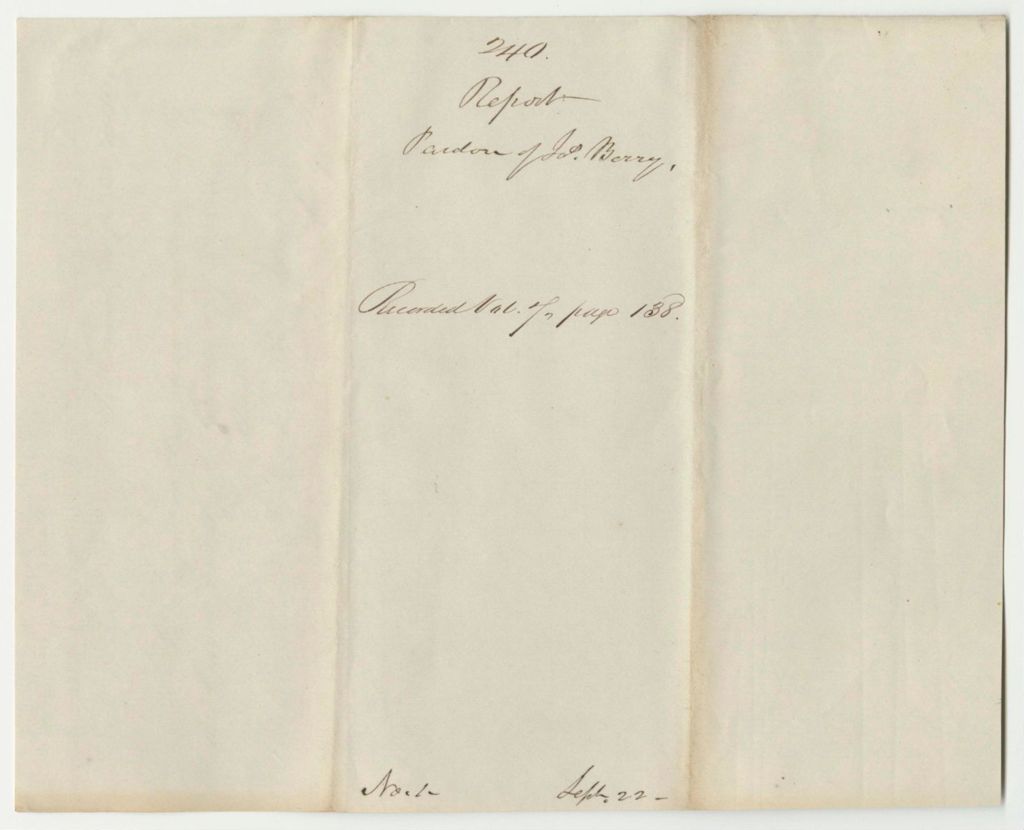 240.
Report
Pardon of Jos. Berry,
Recorded Vol. 7, page 138.
No. 1-
Sept. 22-